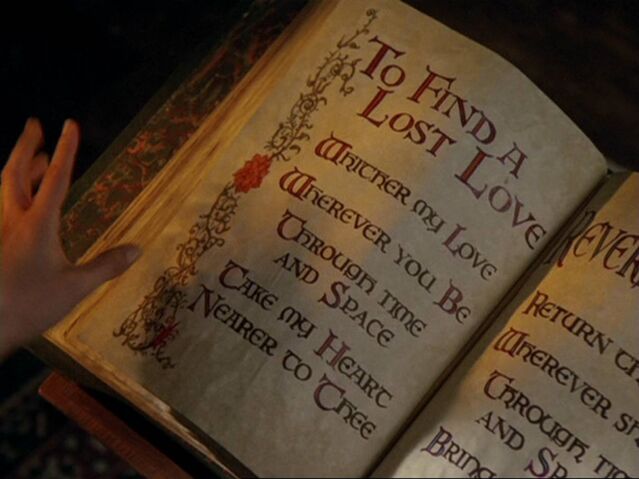 To Find a
Lost Love
Whither my Love
Wherever you Be
Through time
and Space
Take my Heart
Nearer to Thee
Return
Wherever
Through
and
Bring